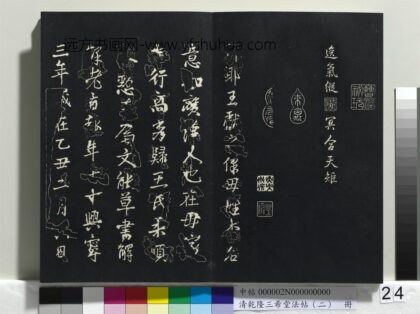 远方书画网-www.yfshuhua.com
逸氣縱冥合天矩
琅耶王獻之保母姓李名
意如廣漢人也在母家
志行高秀歸王氏柔順
恭懃善属文能草書解
釋老旨趣年七十興寧
三年歲在乙丑二月六日
中帖 000002N000000000
清乾隆三希堂法帖（二） 冊
24